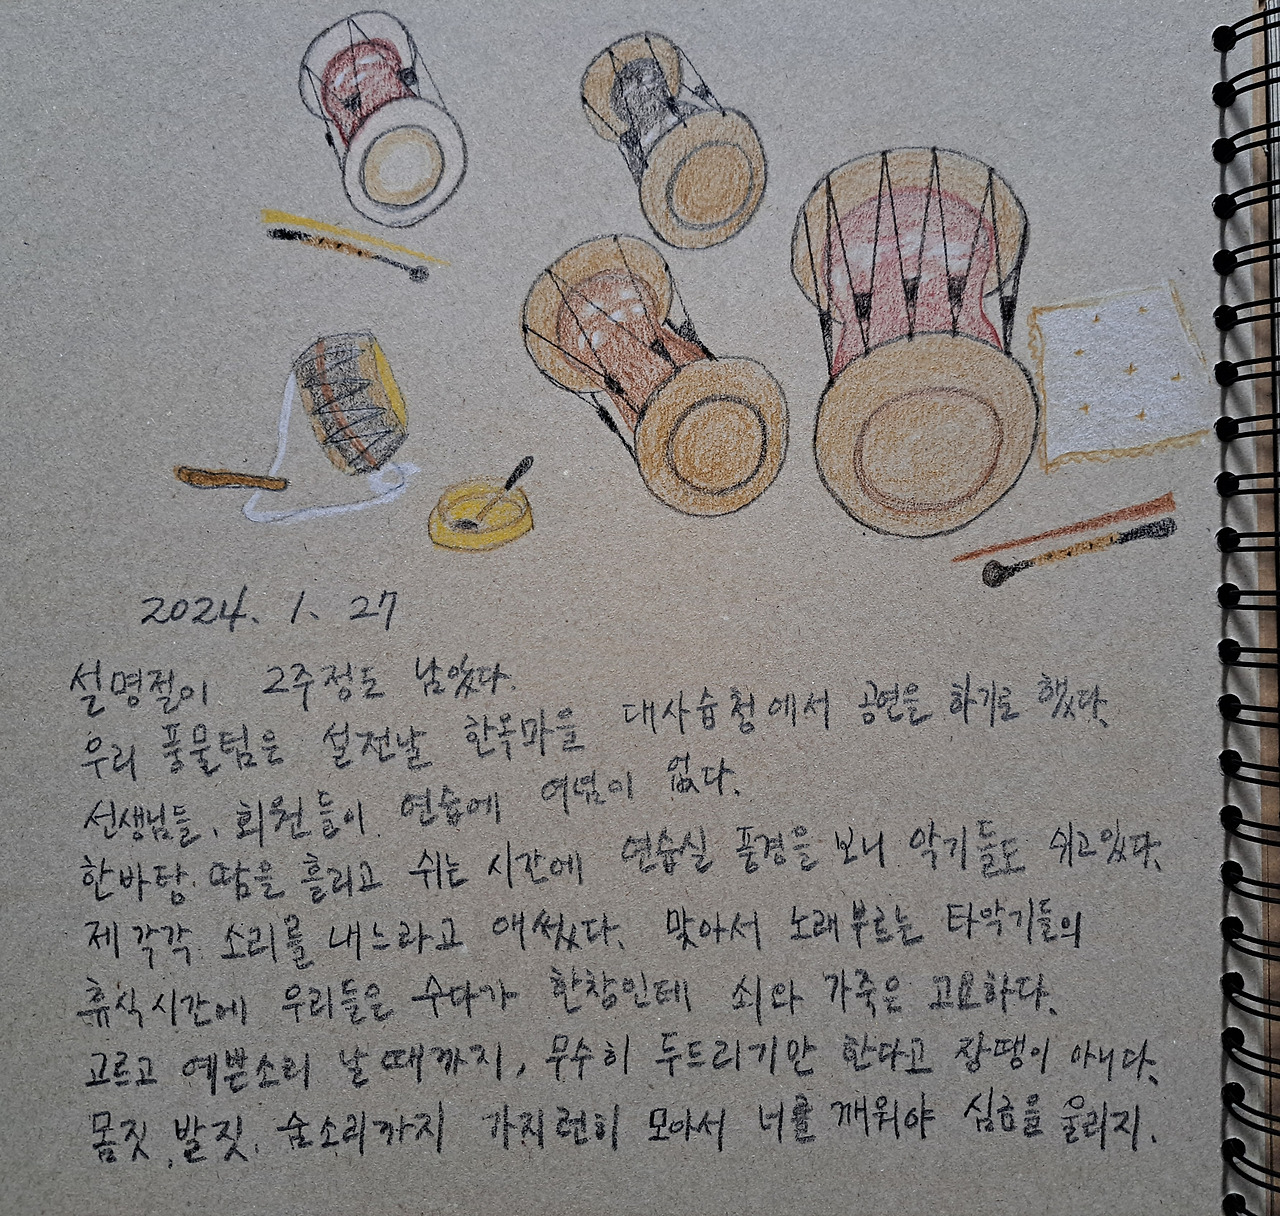 2024. 1. 27
설명절이 2주정도 남았다.
우리 풍물팀은 설전날 한옥마을 대사습청에서 공연을 하기로 했다.
선생님들, 회원들이 연습에 여념이 없다.
한바탕 땀을 흘리고 쉬는 시간에 연습실 풍경을 보니 악기들도 쉬고있다.
제각각 소리를 내느라고 애썼다. 맞아서 노래부르는 타악기들의
휴식시간에 우리들은 수다가 한창인데 쇠와 가죽은 고요하다.
고르고 예쁜소리 날 때까지, 무수히 두드리기만 한다고 장땡이 아니다.
몸짓, 발짓, 숨소리까지 가지런히 모아서 너를 깨워야 심금을 울리지.